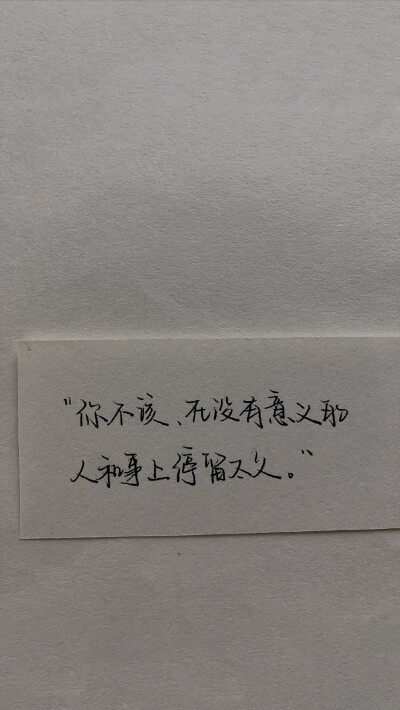 "你不该、在没有意义的
人和事上停留太久。"